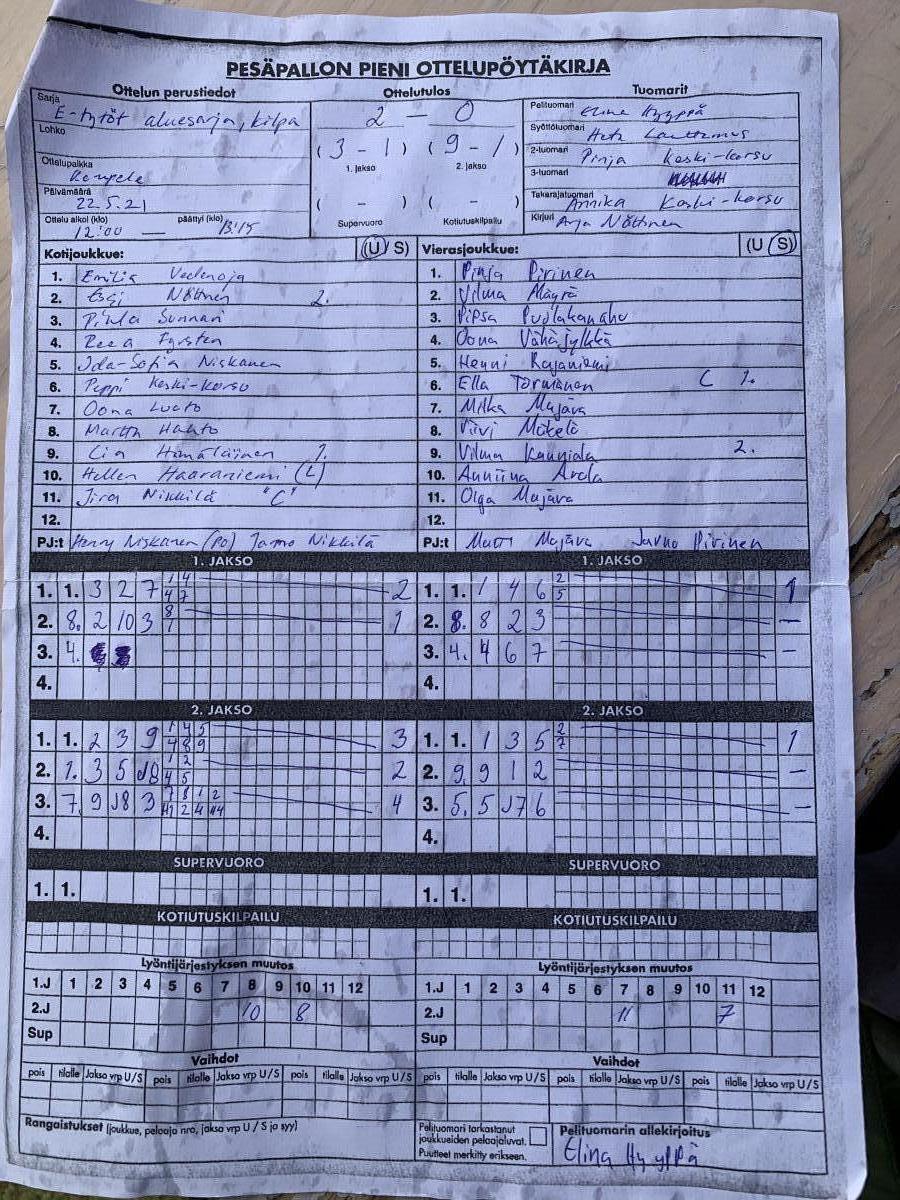 PESÄPALLON PIENI OTTELUPÖYTÄKIRJA
Ottelun perustiedot Ottelutulos Tuomarit
Sarja E-tytöt aluesarja, kilpa
Lohko
Ottelupaikka Kempele
Päivämäärä 22.5.21
Ottelu alkoi (klo) 12:00 päättyi (klo) 13:15
2 - 0
(3 - 1) (9 - 1)
1. jakso 2. jakso
( - ) ( - )
Supervuoro Kotiutuskilpailu
Pelituomari Elina Hyyppä
Syöttötuomari
2-tuomari Pinja Keski-korsu
3-tuomari
Takarajatuomari Annika Keski-korsu
Kirjuri Arja Nöttinen
Kotijoukkue: (U/S) Vierasjoukkue: (U/S)
1. Emilia 1. Pinja Pirinen
2. Essi Nöttinen 2. 2. Vilma Mäyrä
3. Pihla Sunnari 3. Pipsa Puolakanaho
4. Reea Fyrsten 4. Oona Vähäjylkkä
5. Ida-Sofia Niskanen 5. Henni Rajaniemi
6. Peppi Keski-korsu 6. Ella Törmänen C 1.
7. Oona Luoto 7. Milka Majava
8. Martta Hahto 8. Viivi Mäkelä
9. Lia Hämäläinen 1. 9. Vilma 2.
10. Hellen Haaraniemi (L) 10. Anniina Arola
11. Jira Nikkilä "C" 11. Olga Majava
12. 12.
PJ:t Henry Niskanen (PO) Jarmo Nikkilä PJ:t Matti Majava Jarno Pirinen
1. JAKSO 1. JAKSO
1. 1. 3 2 7 1 4 2 1. 1. 1 4 6 2 1
4 7 5
2. 8. 2 10 3 8 1 2. 8. 8 2 3 -
1
3. 4. 3. 4. 4 6 7 -
4. 4.
2. JAKSO 2. JAKSO
1. 1. 2 3 9 1 4 5 3 1. 1. 1 3 5 2 1
4 8 9 7
2. 1. 3 5 J8 1 2 2 2. 9. 9 1 2 -
4 5
3. 7. 9 J8 3 7 8 1 2 4 3. 5. 5 J7 6 -
2 4
4. 4.
SUPERVUORO SUPERVUORO
1. 1. 1. 1.
KOTIUTUSKILPAILU KOTIUTUSKILPAILU
Lyöntijärjestyksen muutos Lyöntijärjestyksen muutos
1.J 1 2 3 4 5 6 7 8 9 10 11 12 1.J 1 2 3 4 5 6 7 8 9 10 11 12
2.J 10 8 2.J 11 7
Sup Sup
Vaihdot Vaihdot
pois tilalle Jakso vrp U/S pois tilalle Jakso vrp U/S pois tilalle Jakso vrp U/S pois tilalle Jakso vrp U/S pois tilalle Jakso vrp U/S pois tilalle Jakso vrp U/S
Rangaistukset (joukkue, pelaaja nro, jakso vrp U / S ja syy)
Pelituomari tarkastanut
joukkueiden pelaajaluvat.
Puutteet merkitty erikseen.
Pelituomarin allekirjoitus
Elina Hyyppä